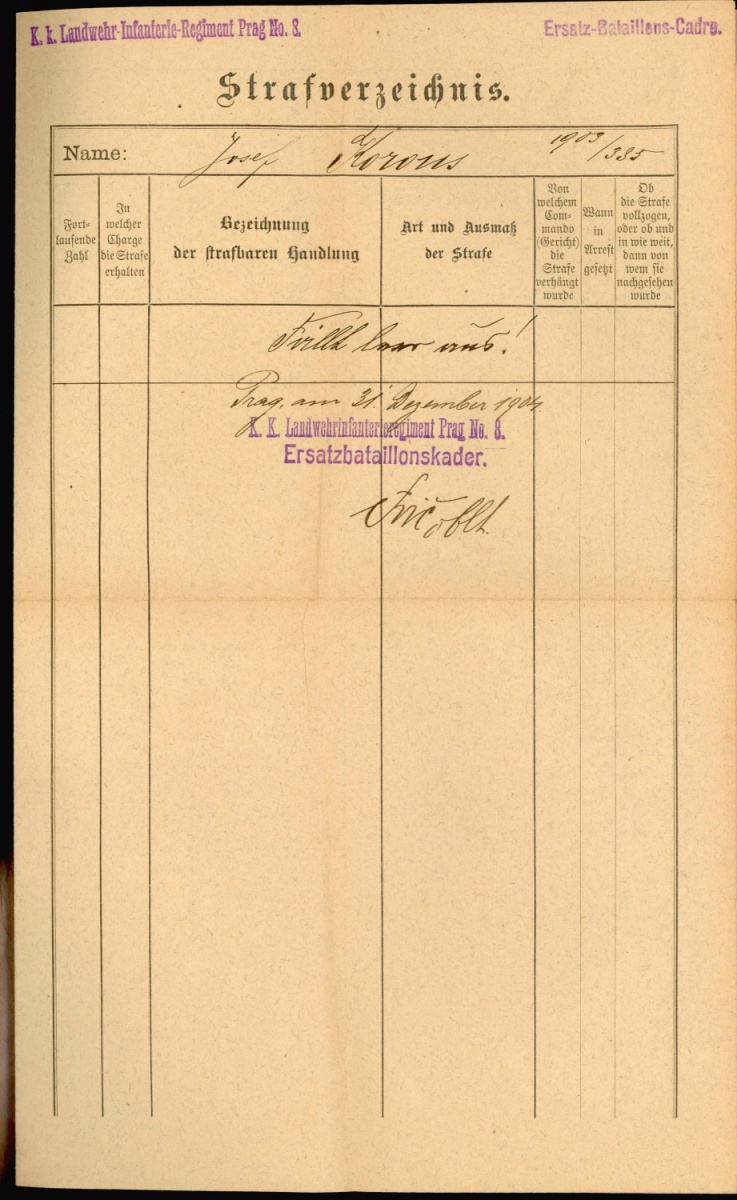 K. k. Landwehr-Infanterie-Regiment Prag No. 8.
Ersatz-Bataillons-Cadre.
Strafverzeichnis.
Name: Josef Korous 1903/335
Fort-
laufende
Zahl
In
welcher
Charge
die Strafe
erhalten
Bezeichnung
der strafbaren Handlung
Art und Ausmaß
der Strafe
Von
welchem
Com-
mando
(Gericht)
die
Strafe
verhängt
wurde
Wann
in
Arrest
gesetzt
Ob
die Strafe
vollzogen,
oder ob und
in wie weit,
dann von
wem sie
nachgesehen
wurde
Füllt leer aus!
Prag, am 31. Dezember 1904
K. K. Landwehrinfanterieregiment Prag No. 8.
Ersatzbataillonskader.
oblt.